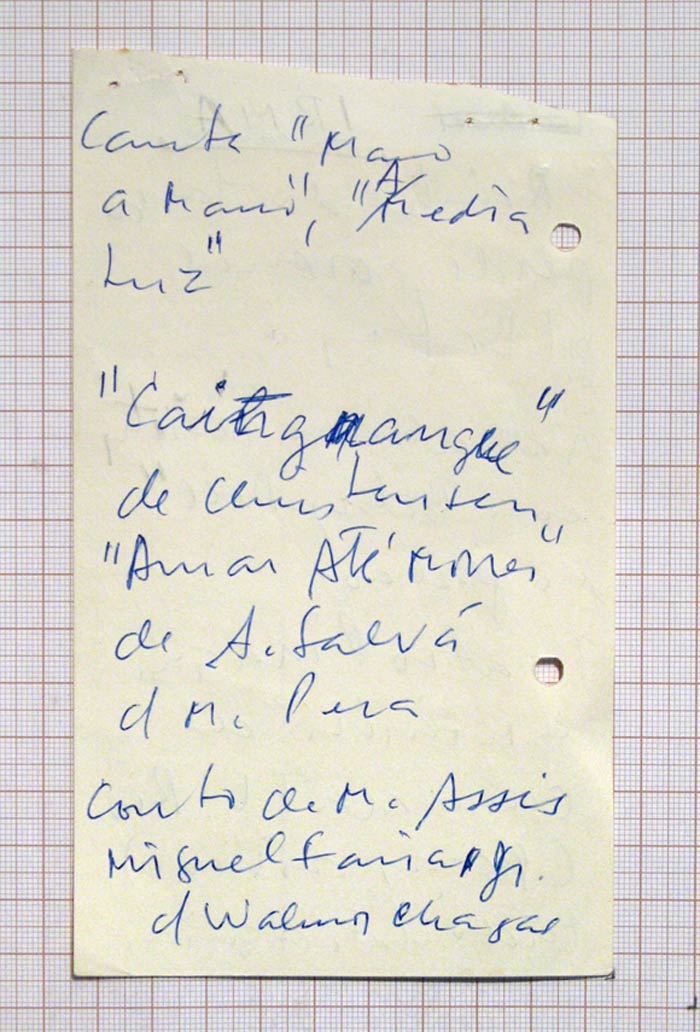 Canta "Mano
a Mano", "A Media
Luz"
"Caingangue"
de Christensen
"Amar Até Morrer"
de A. Salvá
d M. Pera
Conto de M. Assis
Miguel Faria Jr.
d Walmor Chagas